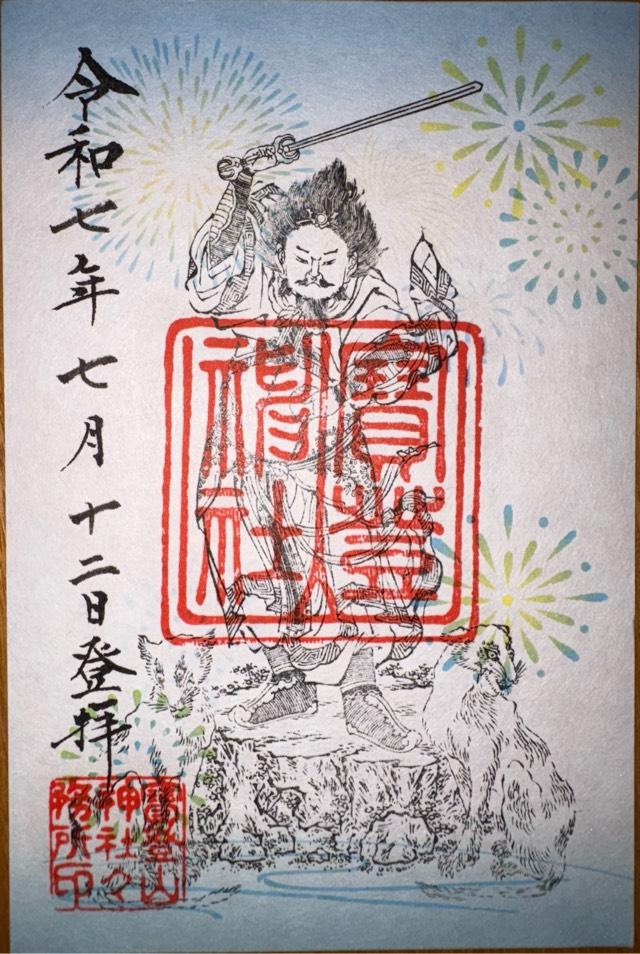 寶登
神社
令和七年七月十二日登拝
寶登山
神社々
務所印